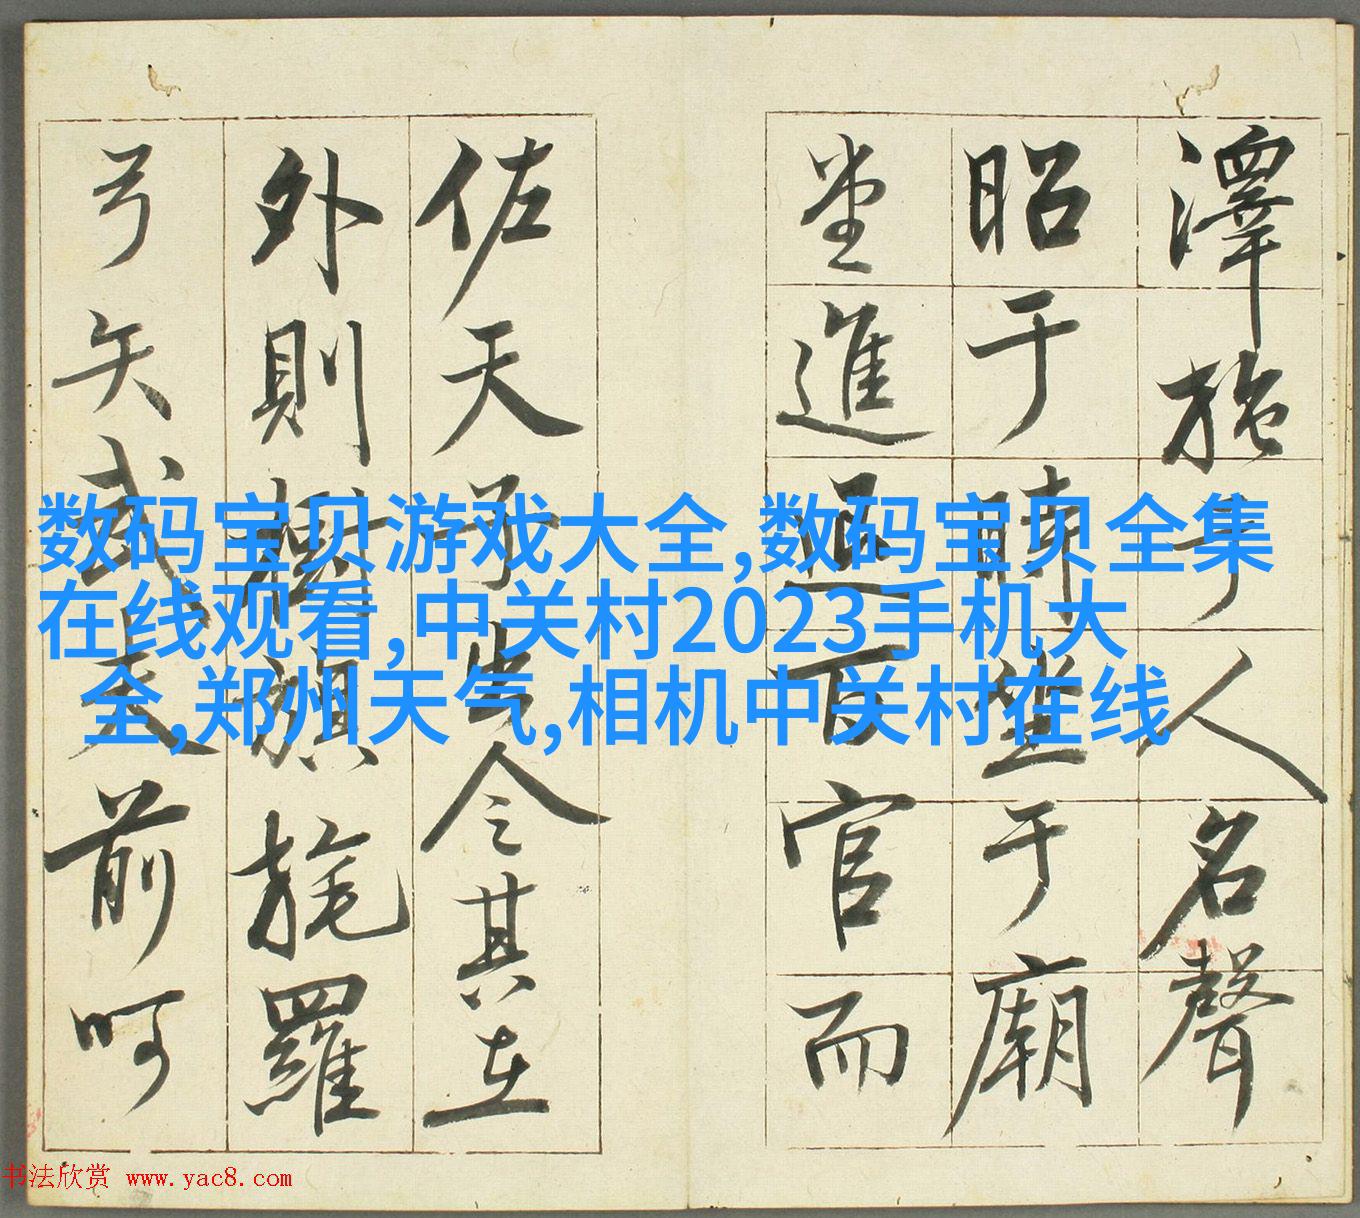 澤施于人名聲
昭于時坐于廟
堂進退百官而
佐天子出令其在
外則樹旗旄羅
弓矢武夫前呵
数码宝贝游戏大全,数码宝贝全集
在线观看,中关村2023手机大
全,郑州天气,相机中关村在线
书法欣赏 www.yac8.com